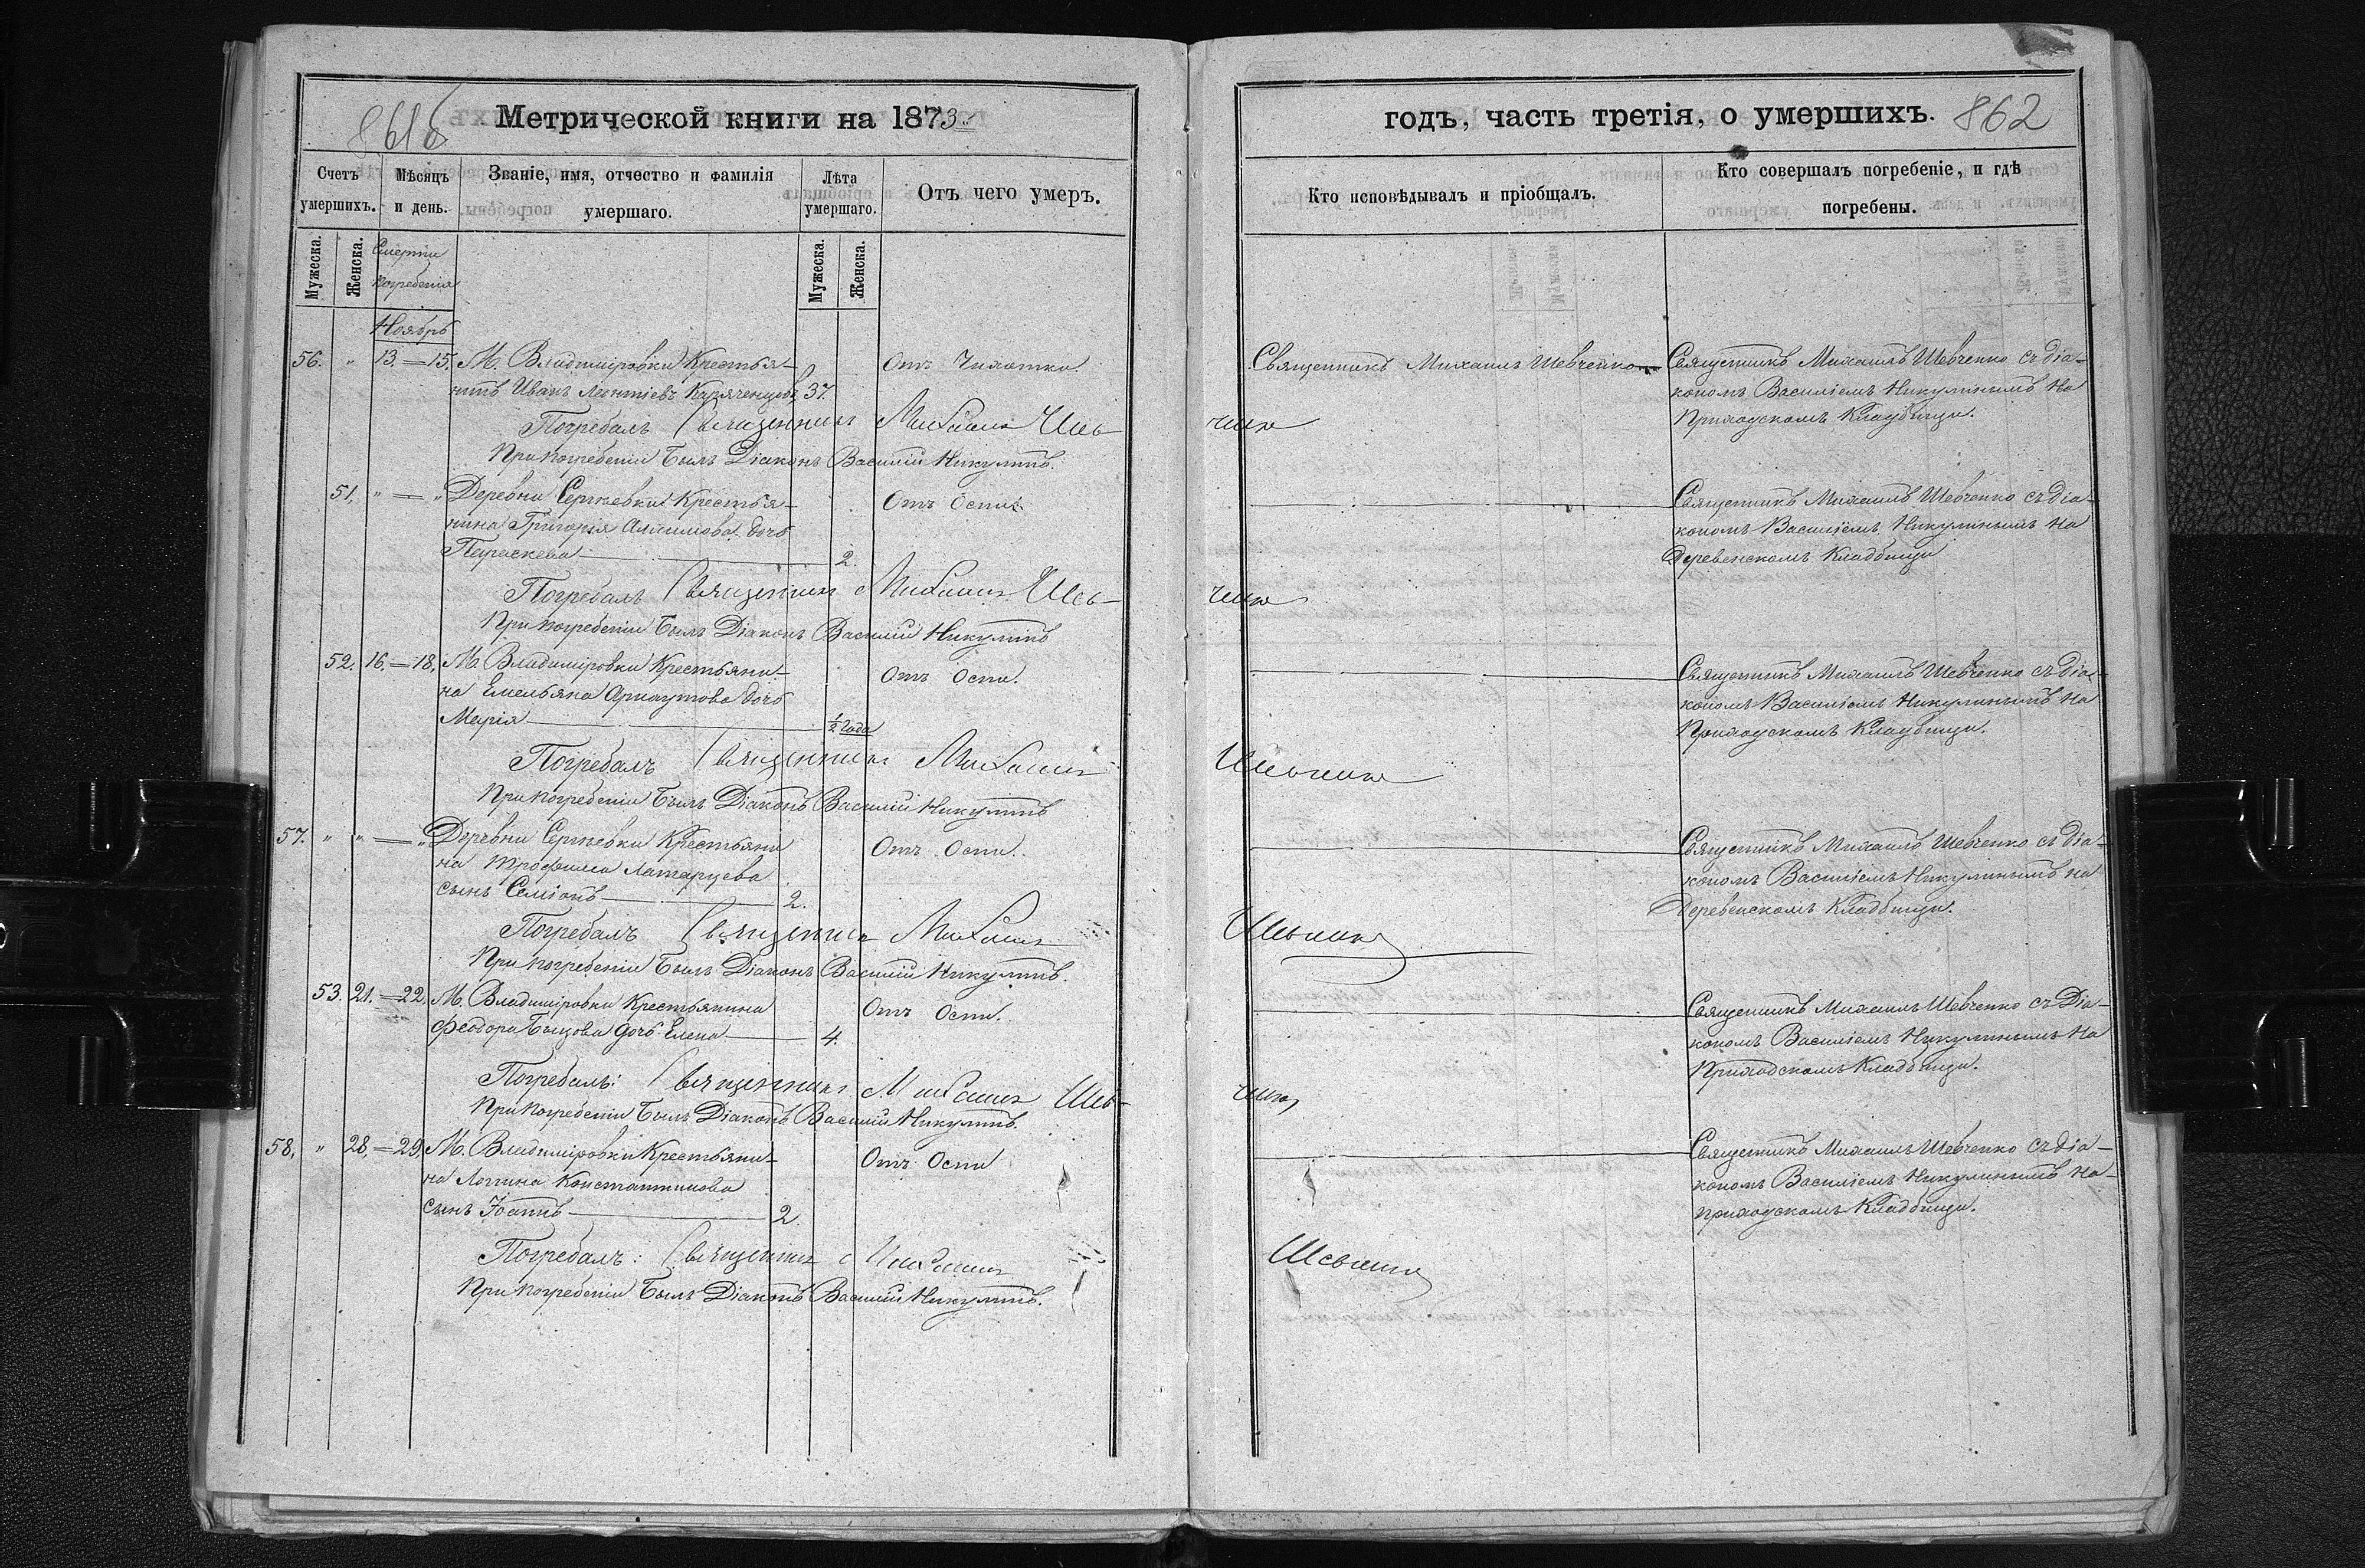 Метрической книги на 1873
годъ, часть третія, о умершихъ.
862
Счетъ умершихъ.
Мѣсяцъ и день.
Званіе, имя, отчество и фамилія умершаго.
Лѣта умершаго.
Отъ чего умеръ.
Кто исповѣдывалъ и пріобщалъ.
Кто совершалъ погребеніе, и гдѣ погребены.
Мужеска.
Женска.
Смерти
погребенія
Мужеска.
Женска.
Ноябрь
56. " 13.=15. М. Владиміровки Крестья- Отъ Чихотки Священникъ Михаилъ Шевченко Священникъ Михаилъ Шевченко съ діа-
нинъ Иванъ Леонтіевъ 37. кономъ Василіемъ Никулинымъ на
Приходскомъ Кладбищи.
Погребалъ Священникъ Михаилъ Шев- ченко
При погребеніи былъ Діаконъ Василій Никулинъ.
51, " = " Деревни Сергѣевки Крестья- Отъ Оспы. Священникъ Михаилъ Шевченко съ діа-
нина Григорія Анисимова дочь кономъ Василіемъ Никулинымъ на
Параскева 2. Деревенскомъ Кладбищи
Погребалъ Священникъ Михаилъ Шев- ченко
При погребеніи былъ Діаконъ Василій Никулинъ
52. 16.=18. М. Владиміровки Крестьяни- Отъ Оспы. Священникъ Михаилъ Шевченко съ діа-
на Емельяна Арнаутова дочь кономъ Василіемъ Никулинымъ на
Марія ½ года Приходскомъ Кладбищи.
Погребалъ Священникъ Михаилъ Шевченко
При погребеніи былъ Діаконъ Василій Никулинъ
57. " " = " Деревни Сергѣевки Крестьяни Отъ Оспы. Священникъ Михаилъ Шевченко съ діа-
на Трофима Латарцева кономъ Василіемъ Никулинымъ на
сынъ Семіонъ 2. Деревенскомъ Кладбищи.
Погребалъ Священникъ Михаилъ Шевченко
При погребеніи былъ Діаконъ Василій Никулинъ.
53. 21.=22. М. Владиміровки Крестьянина Отъ Оспы. Священникъ Михаилъ Шевченко съ Діа-
Феодора дочь Елена 4. кономъ Василіемъ Никулинымъ на
Приходскомъ Кладбищи.
Погребалъ: Священникъ Михаилъ Шев- ченко
При погребеніи былъ Діаконъ Василій Никулинъ.
58, " 28,=29, М. Владиміровки Крестьяни- Отъ Оспы Священникъ Михаилъ Шевченко съ діа-
на Логина Константинова кономъ Василіемъ Никулинымъ на-
сынъ Іоаннъ 2. приходскомъ Кладбищи.
Погребалъ: Священникъ Михаилъ Шевченко
При погребеніи былъ Діаконъ Василій Никулинъ.